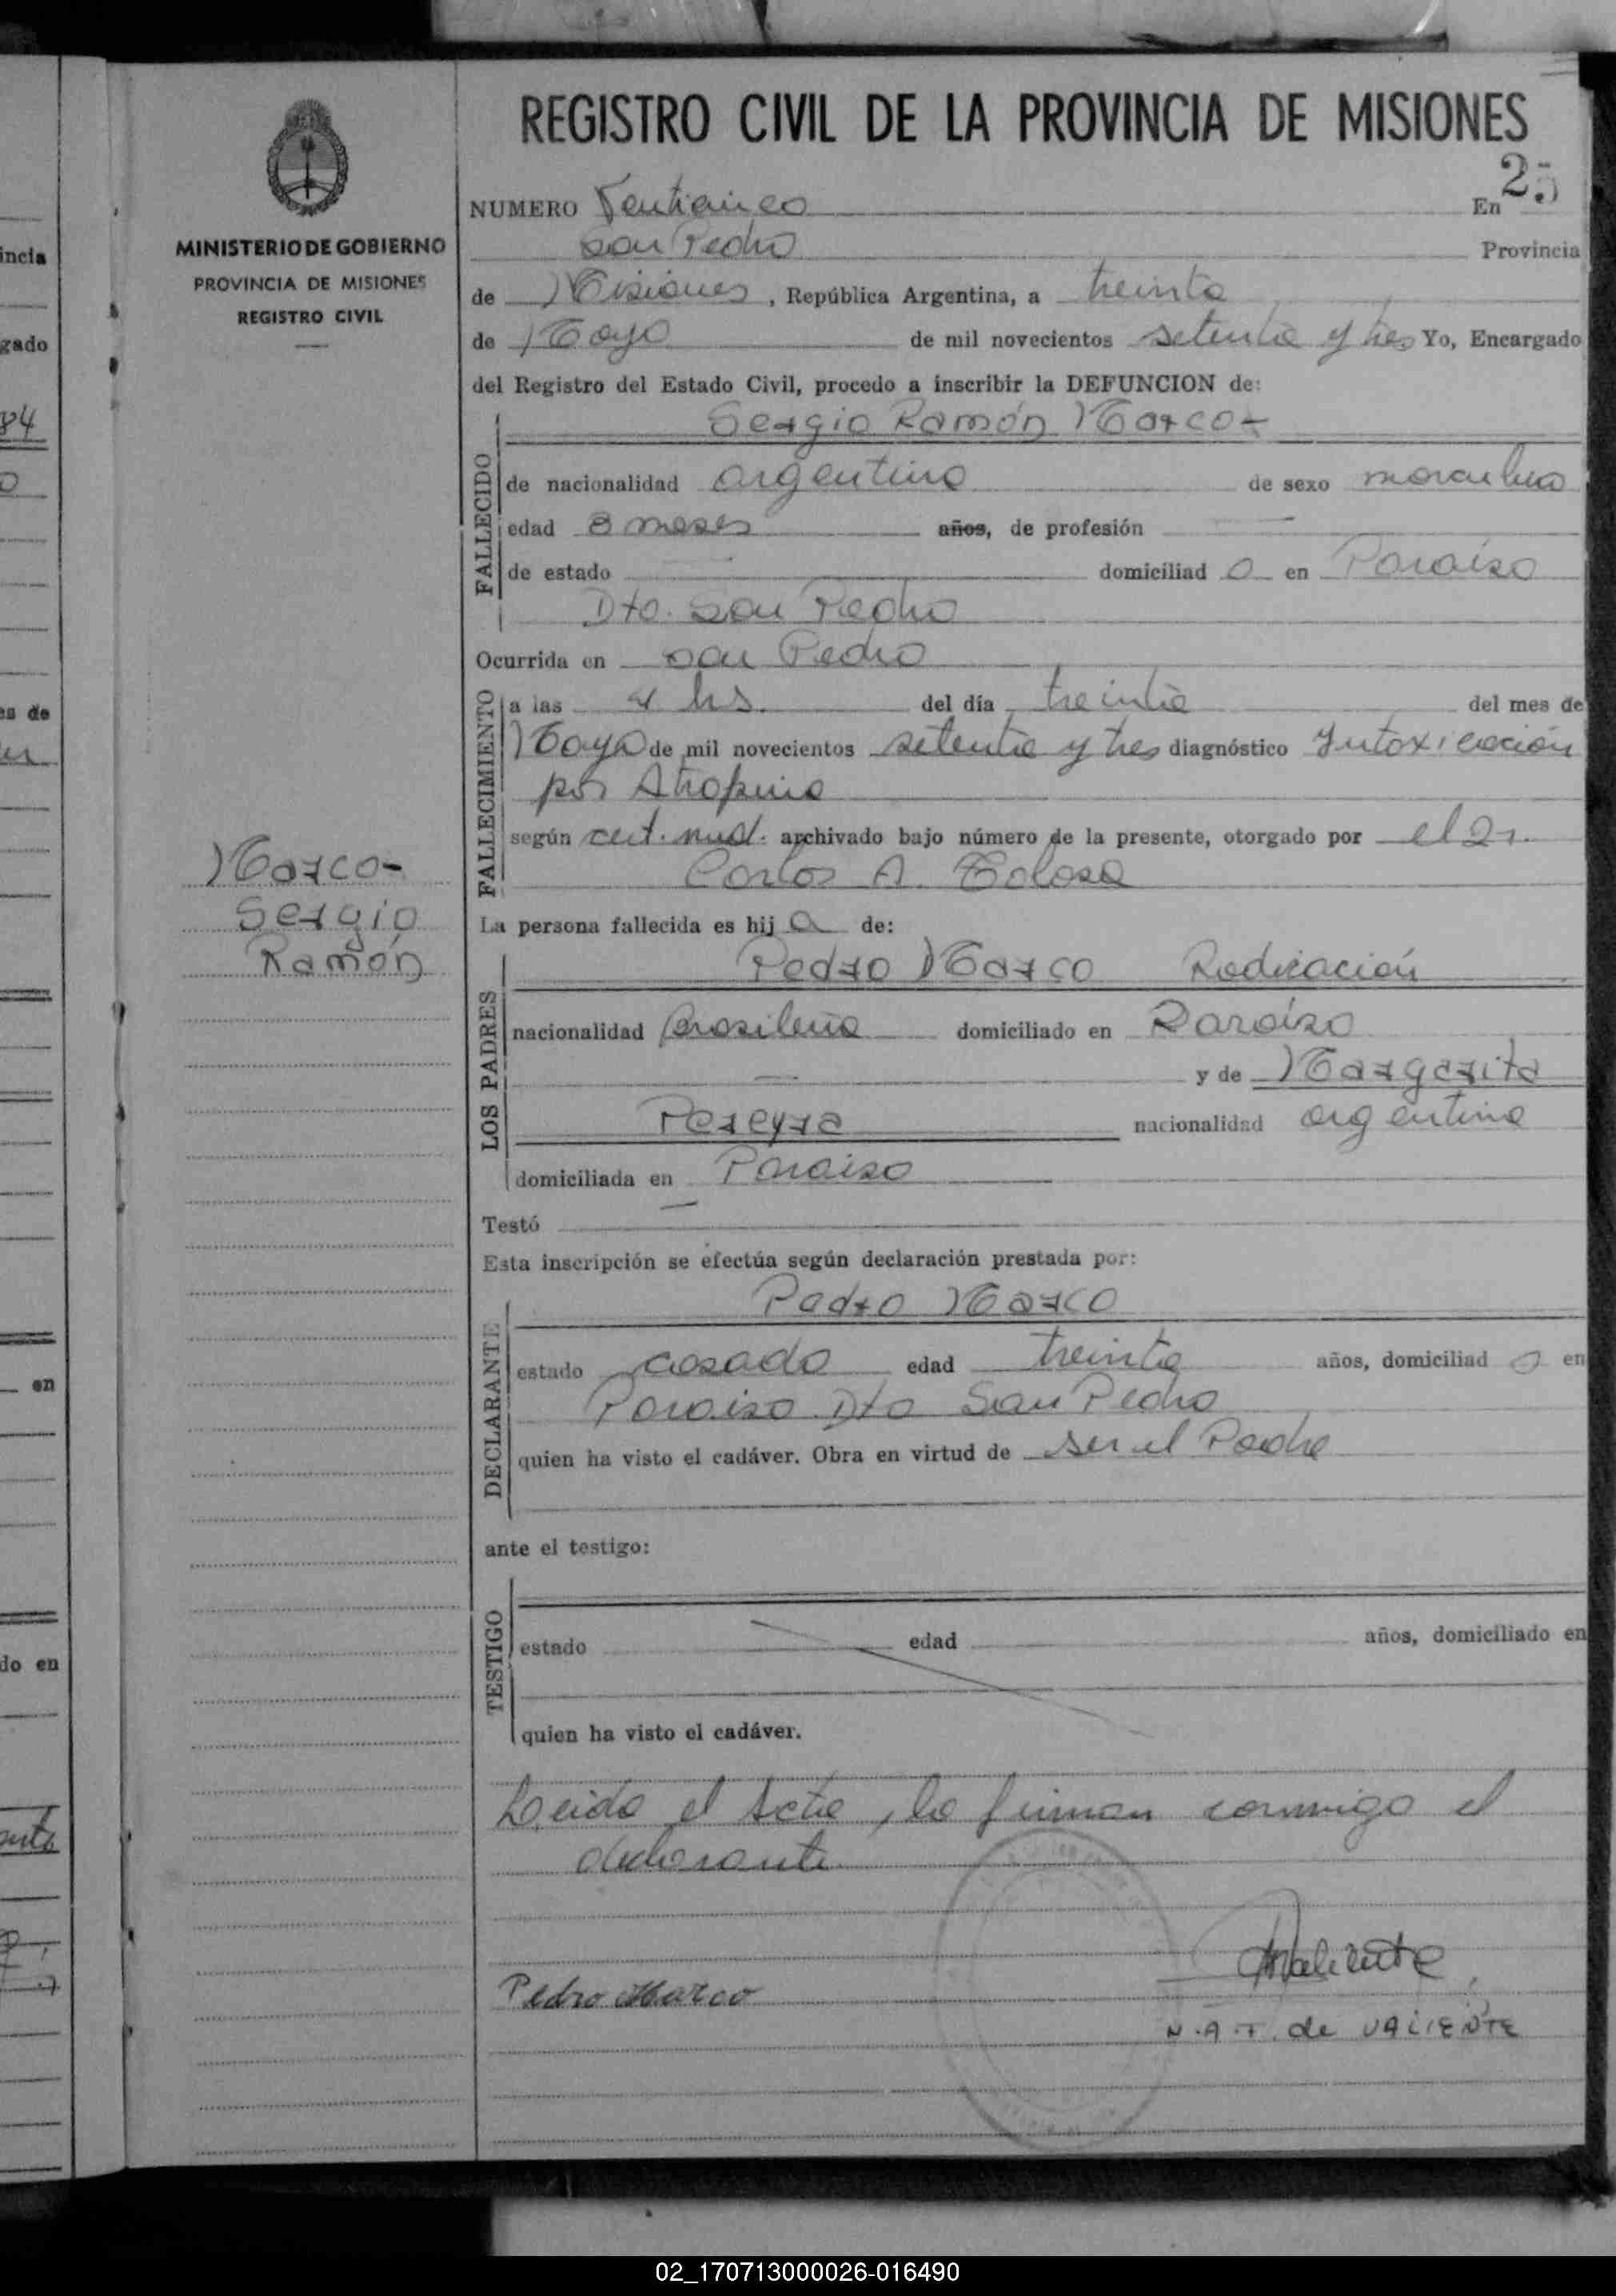 REGISTRO CIVIL DE LA PROVINCIA DE MISIONES
MINISTERIO DE GOBIERNO
PROVINCIA DE MISIONES
REGISTRO CIVIL
25
NUMERO Veinticinco En
San Pedro Provincia
de Misiones, República Argentina, a treinta
de Mayo de mil novecientos setenta y tres Yo, Encargado
del Registro del Estado Civil, procedo a inscribir la DEFUNCION de:
Sergio Ramón Marco-
FALLECIDO
de nacionalidad argentina de sexo masculino
edad 8 meses años, de profesión —
de estado — domiciliad o en Paraíso
Dto. San Pedro
Ocurrida en San Pedro
FALLECIMIENTO
a las 4 hs. del día treinta del mes de
Mayo de mil novecientos setenta y tres diagnóstico Intoxicación
por Atropina
según cert. med. archivado bajo número de la presente, otorgado por el Dr.
Carlos A. Tolosa
Marco-
Sergio
Ramón
La persona fallecida es hij o de:
LOS PADRES
Pedro Marco Radicación
nacionalidad Brasileña domiciliado en Paraíso
— y de Margarita
Pereyra nacionalidad argentina
domiciliada en Paraiso
Testó —
Esta inscripción se efectúa según declaración prestada por:
Pedro Marco
DECLARANTE
estado casado edad treinta años, domiciliad o en
Paraiso Dto San Pedro
quien ha visto el cadáver. Obra en virtud de ser el Padre
ante el testigo:
TESTIGO
estado edad años, domiciliado en
quien ha visto el cadáver.
Leida el Acta, la firman conmigo el
declarante
Pedro Marco
Valiente
N.A.T. de VALIENTE
incia
gado
84
es de
en
do en
02_170713000026-016490